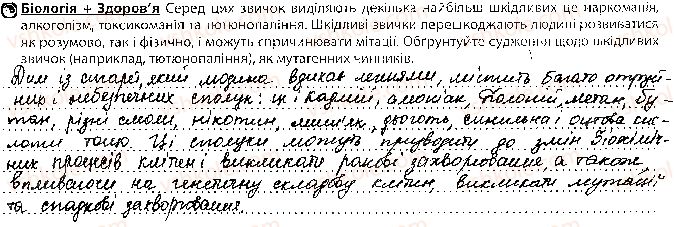 Біологія + Здоров'я Серед цих звичок виділяють декілька найбільш шкідливих це наркоманія,
алкоголізм, токсикоманія та тютюнопаління. Шкідливі звички перешкоджають людині розвиватися
як розумово, так і фізично, і можуть спричинювати мітації. Обґрунтуйте судження щодо шкідливих
звичок (наприклад, тютюнопаління), як мутагенних чинників.
Дим із сигарет, який людина вдихає легенями, містить багато отруй-
них і небезпечних сполук: це і кадмій, амоніак, Полоній, метан, бу-
тан, різні смоли, нікотин, миш'як, дьоготь, синильна і оцтова кис-
лоти тощо. Ці сполуки можуть призводити до змін біохіміч-
них процесів клітин і викликати ракові захворювання, а також
впливаючи на генетичну складову клітин, викликати мутації
та спадкові захворювання.